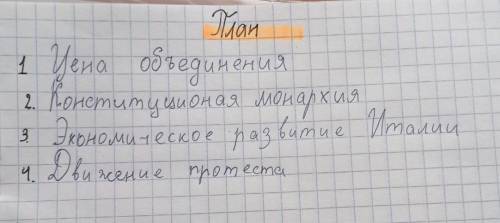 План
1 Цена объединения
2. Конституционая монархия
3. Экономическое развитие Италии
4. Движение протеста